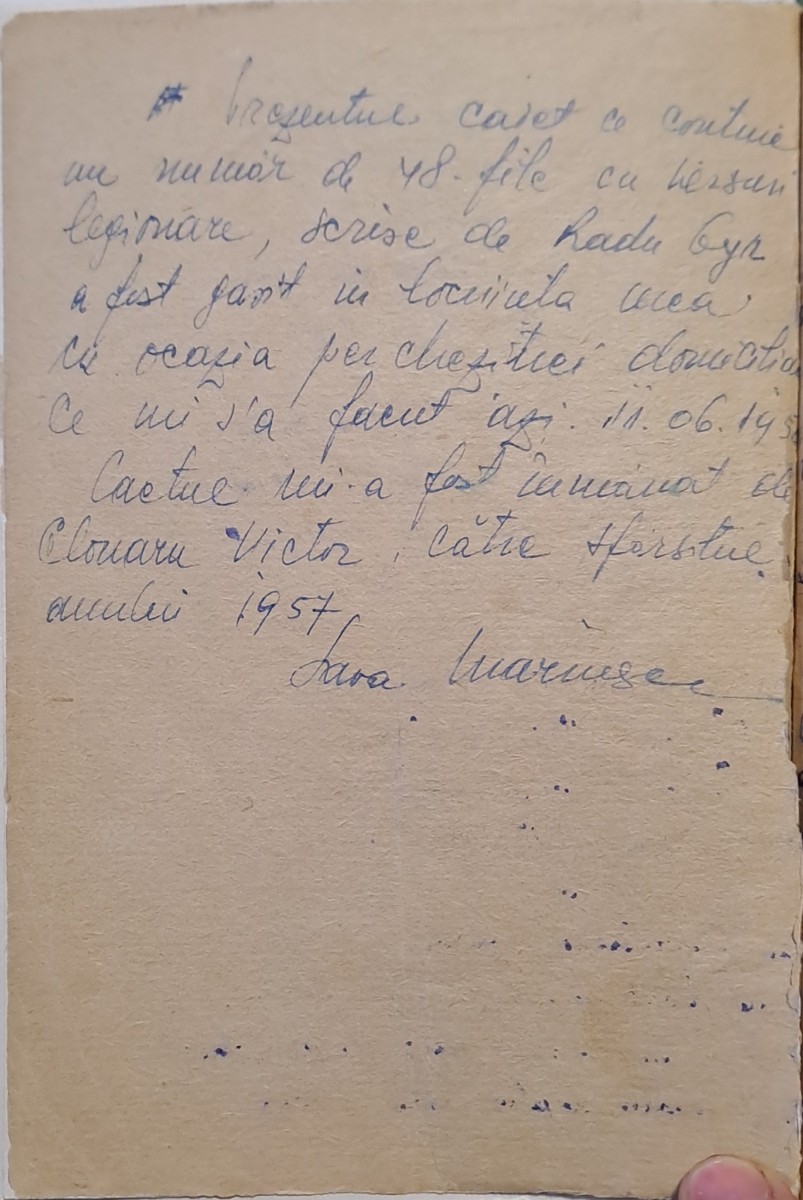 Prezentul caiet ce contine
un număr de 48. file cu versuri
legionare, scrise de Radu Gyr
a fost gasit in locuinta mea
cu ocazia perchezitiei
Ce mi s'a facut azi. 11. 06. 195
Caetul mi-a fost înmânat de
Victor, către sfârsitul
anului 1957
Sava Marinescu